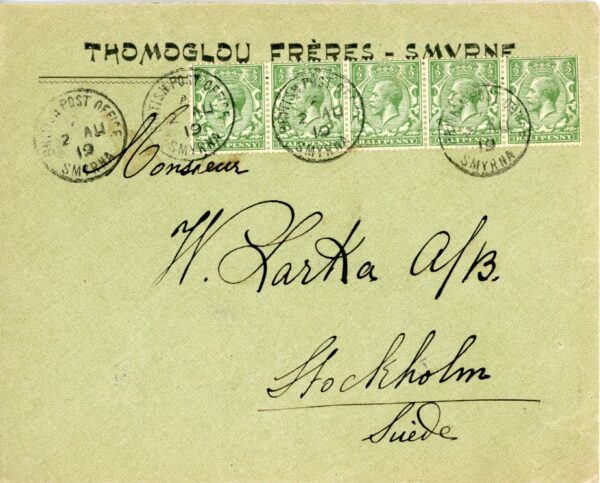 THOMOGLOU FRÈRES - SMYRNE
BRITISH POST OFFICE
2 AU
19
SMYRNA
BRITISH POST OFFICE
19
SMYRNA
BRITISH POST
2 AU
19
SMYRNA
OFFICE
19
SMYRNA
HALFPENNY
Monsieur
W. Larka A/B.
Stockholm
Suède